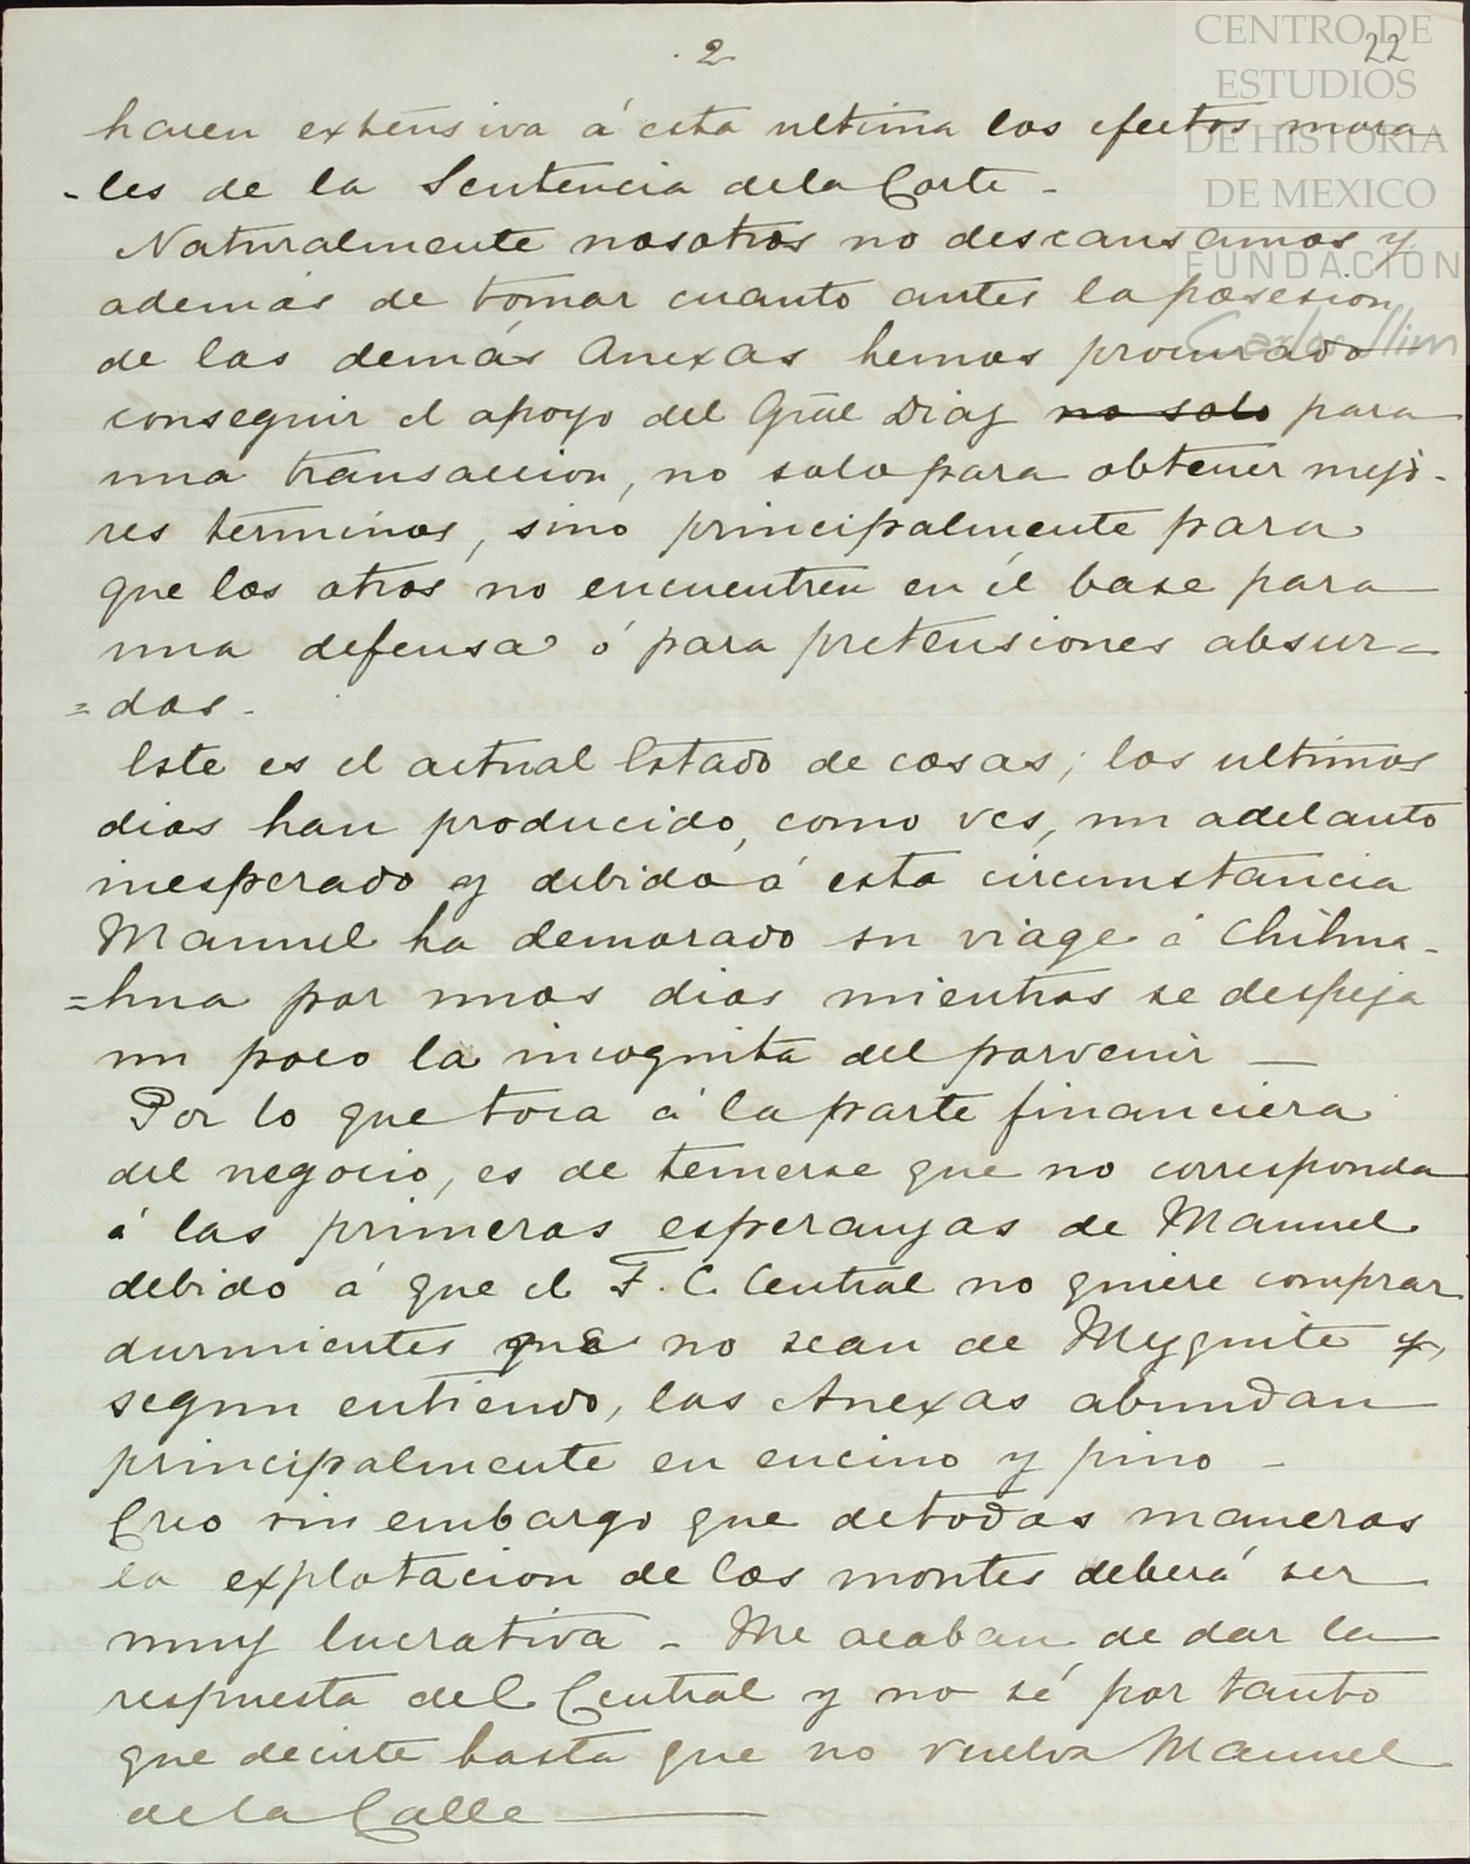 2
22
CENTRO DE
ESTUDIOS
DE HISTORIA
DE MEXICO
FUNDACIÓN
Carlos Slim
hacen extensiva á esta ultima los efectos mora-
-les de la Sentencia dela Corte -
Naturalmente nosotros no descansamos y
ademas de tomar cuanto antes la posesion
de las demás Anexas hemos procurado
conseguir el apoyo del Gral Diaz no solo para
una transaccion, no solo para obtener mejo-
res terminos, sino principalmente para
que los otros no encuentren en él base para
una defensa ó para pretensiones absur=
=das -
Este es el actual Estado de cosas; los ultimos
dias han producido, como ves, un adelanto
inesperado y debido á esta circumstancia
Manuel ha demorado su viage á Chihua-
=hua por unos dias mientras se despeja
un poco la incognita del porvenir —
Por lo que toca á la parte financiera
del negocio, es de temerse que no corresponda
á las primeras esperanzas de Manuel
debido á que el F. C. Central no quiere comprar
durmientes que no sean de Mezquite y,
segun entiendo, las Anexas abundan
principalmente en encino y pino -
Creo sin embargo que de todas maneras
la explotacion de los montes deberá ser
muy lucrativa - Me acaban de dar la
respuesta del Central y no sé por tanto
que decirte hasta que no vuelva Manuel
de la Calle —